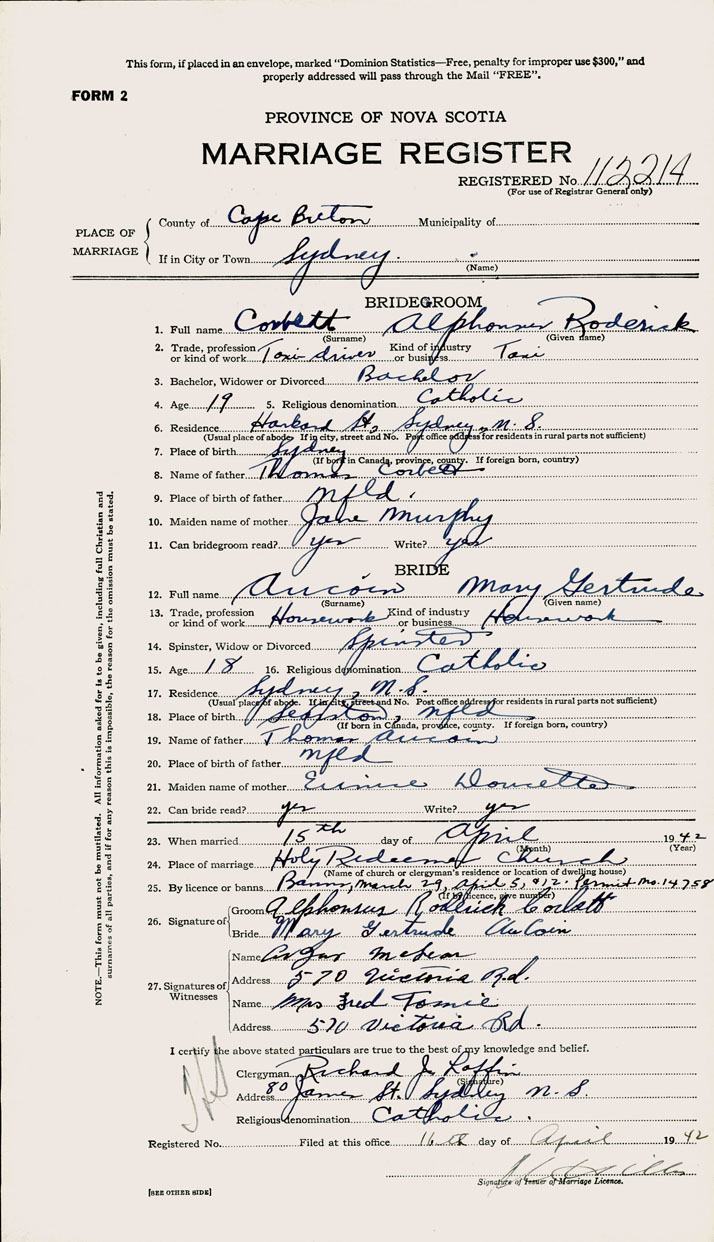 This form, if placed in an envelope, marked “Dominion Statistics—Free, penalty for improper use $300,” and
properly addressed will pass through the Mail “FREE”.
FORM 2
PROVINCE OF NOVA SCOTIA
MARRIAGE REGISTER
REGISTERED No. 112214
(For use of Registrar General only)
PLACE OF MARRIAGE
County of Cape Breton Municipality of
If in City or Town Sydney.
(Name)
BRIDEGROOM
1. Full name Corbett Alphonsus Roderick
(Surname) (Given name)
2. Trade, profession or kind of work Taxi driver Kind of industry or business Taxi
3. Bachelor, Widower or Divorced Bachelor
4. Age 19 5. Religious denomination Catholic
6. Residence St, Sydney, N.S.
(Usual place of abode. If in city, street and No. Post office address for residents in rural parts not sufficient)
7. Place of birth Sydney
(If born in Canada, province, county. If foreign born, country)
8. Name of father Thomas Corbett
9. Place of birth of father Nfld.
10. Maiden name of mother Jane Murphy
11. Can bridegroom read? yes Write? yes
BRIDE
12. Full name Aucoin Mary Gertrude
(Surname) (Given name)
13. Trade, profession or kind of work Housework Kind of industry or business Housework
14. Spinster, Widow or Divorced Spinster
15. Age 18 16. Religious denomination Catholic
17. Residence Sydney, N.S.
(Usual place of abode. If in city, street and No. Post office address for residents in rural parts not sufficient)
18. Place of birth Nfld
(If born in Canada, province, county. If foreign born, country)
19. Name of father Thomas Aucoin
20. Place of birth of father Nfld
21. Maiden name of mother Eunice Doucette
22. Can bride read? yes Write? yes
23. When married 15th day of April 1942
(Month) (Year)
24. Place of marriage Holy Redeemer Church
(Name of church or clergyman's residence or location of dwelling house)
25. By licence or banns Banns, March 29, April 5, &12. Permit No. 14758
(If by licence, give number)
26. Signature of
Groom Alphonsus Rodrick Corbett
Bride Mary Gertrude AuCoin
27. Signatures of Witnesses
Name
Address 570 Victoria Rd.
Name Mrs Fred Tomie
Address 570 Victoria Rd.
I certify the above stated particulars are true to the best of my knowledge and belief.
Clergyman Richard J.
(Signature)
Address 80 James St. Sydney N.S.
Religious denomination Catholic.
Registered No. Filed at this office 16th day of April 1942
Signature of Issuer of Marriage Licence.
[SEE OTHER SIDE]
NOTE.—This form must not be mutilated. All information asked for is to be given, including full Christian and
surnames of all parties, and if for any reason this is impossible, the reason for the omission must be stated.